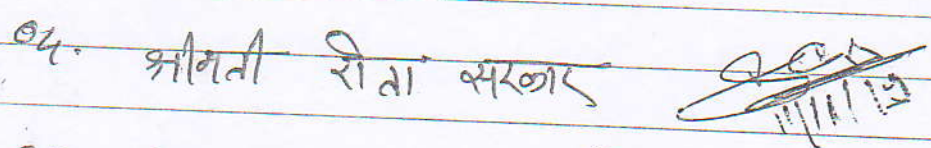 ०५. श्रीमती रीता सरकार